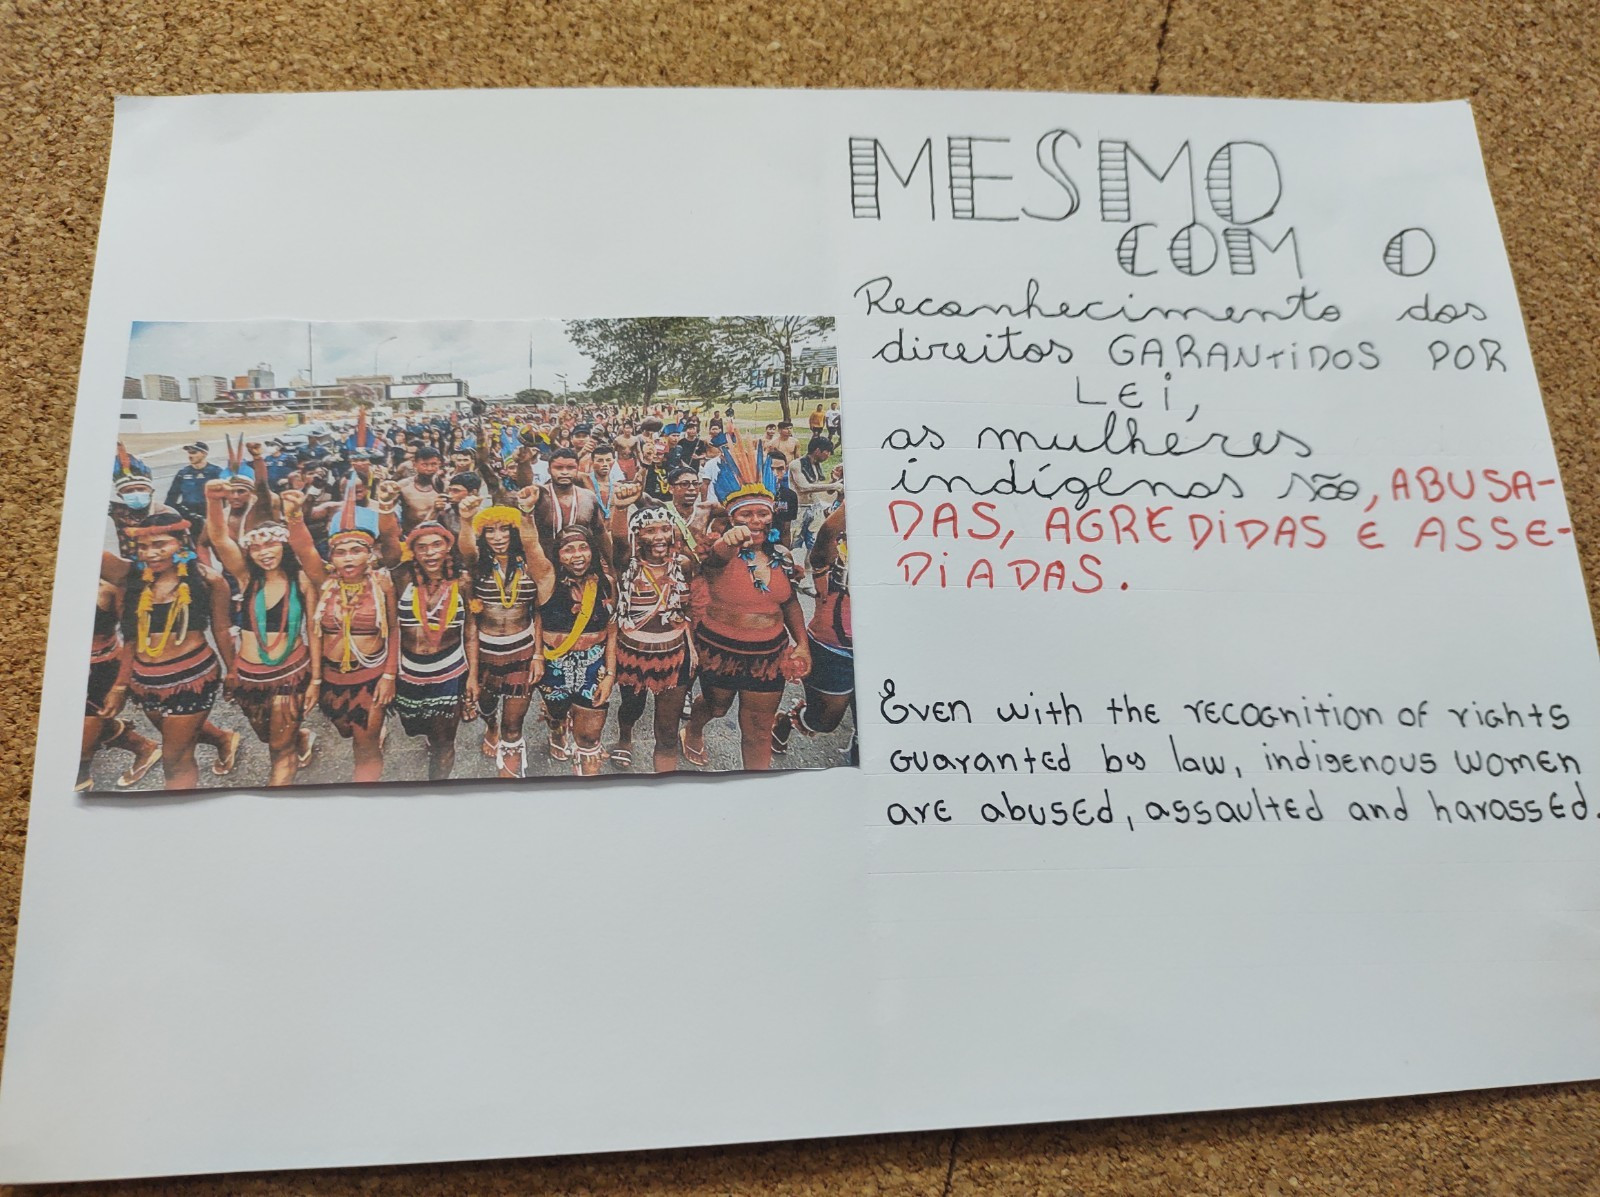 MESMO
COM O
Reconhecimento dos
direitos GARANTIDOS POR
LEI,
as mulhéres
indígenas são, ABUSA-
DAS, AGREDIDAS E ASSE-
DIADAS.
Even with the recognition of rights
guaranted by law, indigenous women
are abused, assaulted and harassed.